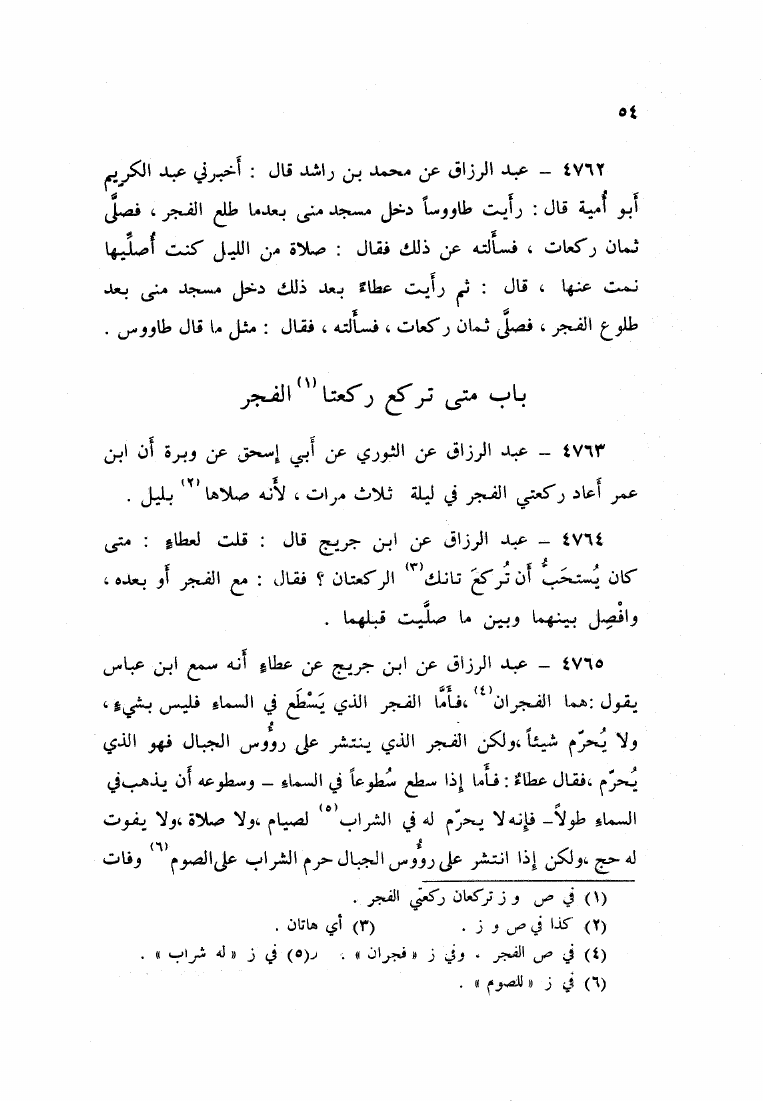 ٥٤
٤٧٦٢ – عبد الرزاق عن محمد بن راشد قال : أخبرني عبد الكريم
أبو أُمية قال : رأيت طاووساً دخل مسجد منى بعدما طلع الفجر ، فصلَّى
ثمان ركعات ، فسألته عن ذلك فقال : صلاة من الليل كنت أُصلِّيها
نمت عنها ، قال : ثم رأيت عطاءً بعد ذلك دخل مسجد منى بعد
طلوع الفجر ، فصلَّى ثمان ركعات ، فسألته ، فقال : مثل ما قال طاووس .
باب متى تركع ركعتا(١) الفجر
٤٧٦٣ – عبد الرزاق عن الثوري عن أبي إسحق عن وبرة أن ابن
عمر أعاد ركعتي الفجر في ليلة ثلاث مرات ، لأنه صلاها(٢) بليل .
٤٧٦٤ – عبد الرزاق عن ابن جريج قال : قلت لعطاءٍ : متى
كان يُستحَبُّ أن تُركعَ تانك(٣) الركعتان ؟ فقال : مع الفجر أو بعده ،
وافْصِل بينهما وبين ما صلَّيت قبلهما .
٤٧٦٥ – عبد الرزاق عن ابن جريج عن عطاءٍ أنه سمع ابن عباس
يقول : هما الفجران(٤) ، فأمَّا الفجر الذي يَسْطَع في السماء فليس بشيءٍ ،
ولا يُحرّم شيئاً ، ولكن الفجر الذي ينتشر على رؤُوس الجبال فهو الذي
يُحرّم ، فقال عطاءٌ : فأما إذا سطع سُطوعاً في السماء – وسطوعه أن يذهب في
السماء طولاً – فإنه لا يحرّم له في الشراب(٥) لصيام ، ولا صلاة ، ولا يفوت
له حج ، ولكن إذا انتشر على رؤُوس الجبال حرم الشراب على الصوم(٦) وفات
(١) في ص و ز تركعان ركعتي الفجر .
(٢) كذا في ص و ز . (٣) أي هاتان .
(٤) في ص الفجر . وفي ز « فجران » . (٥) في ز « له شراب » .
(٦) في ز « للصوم » .